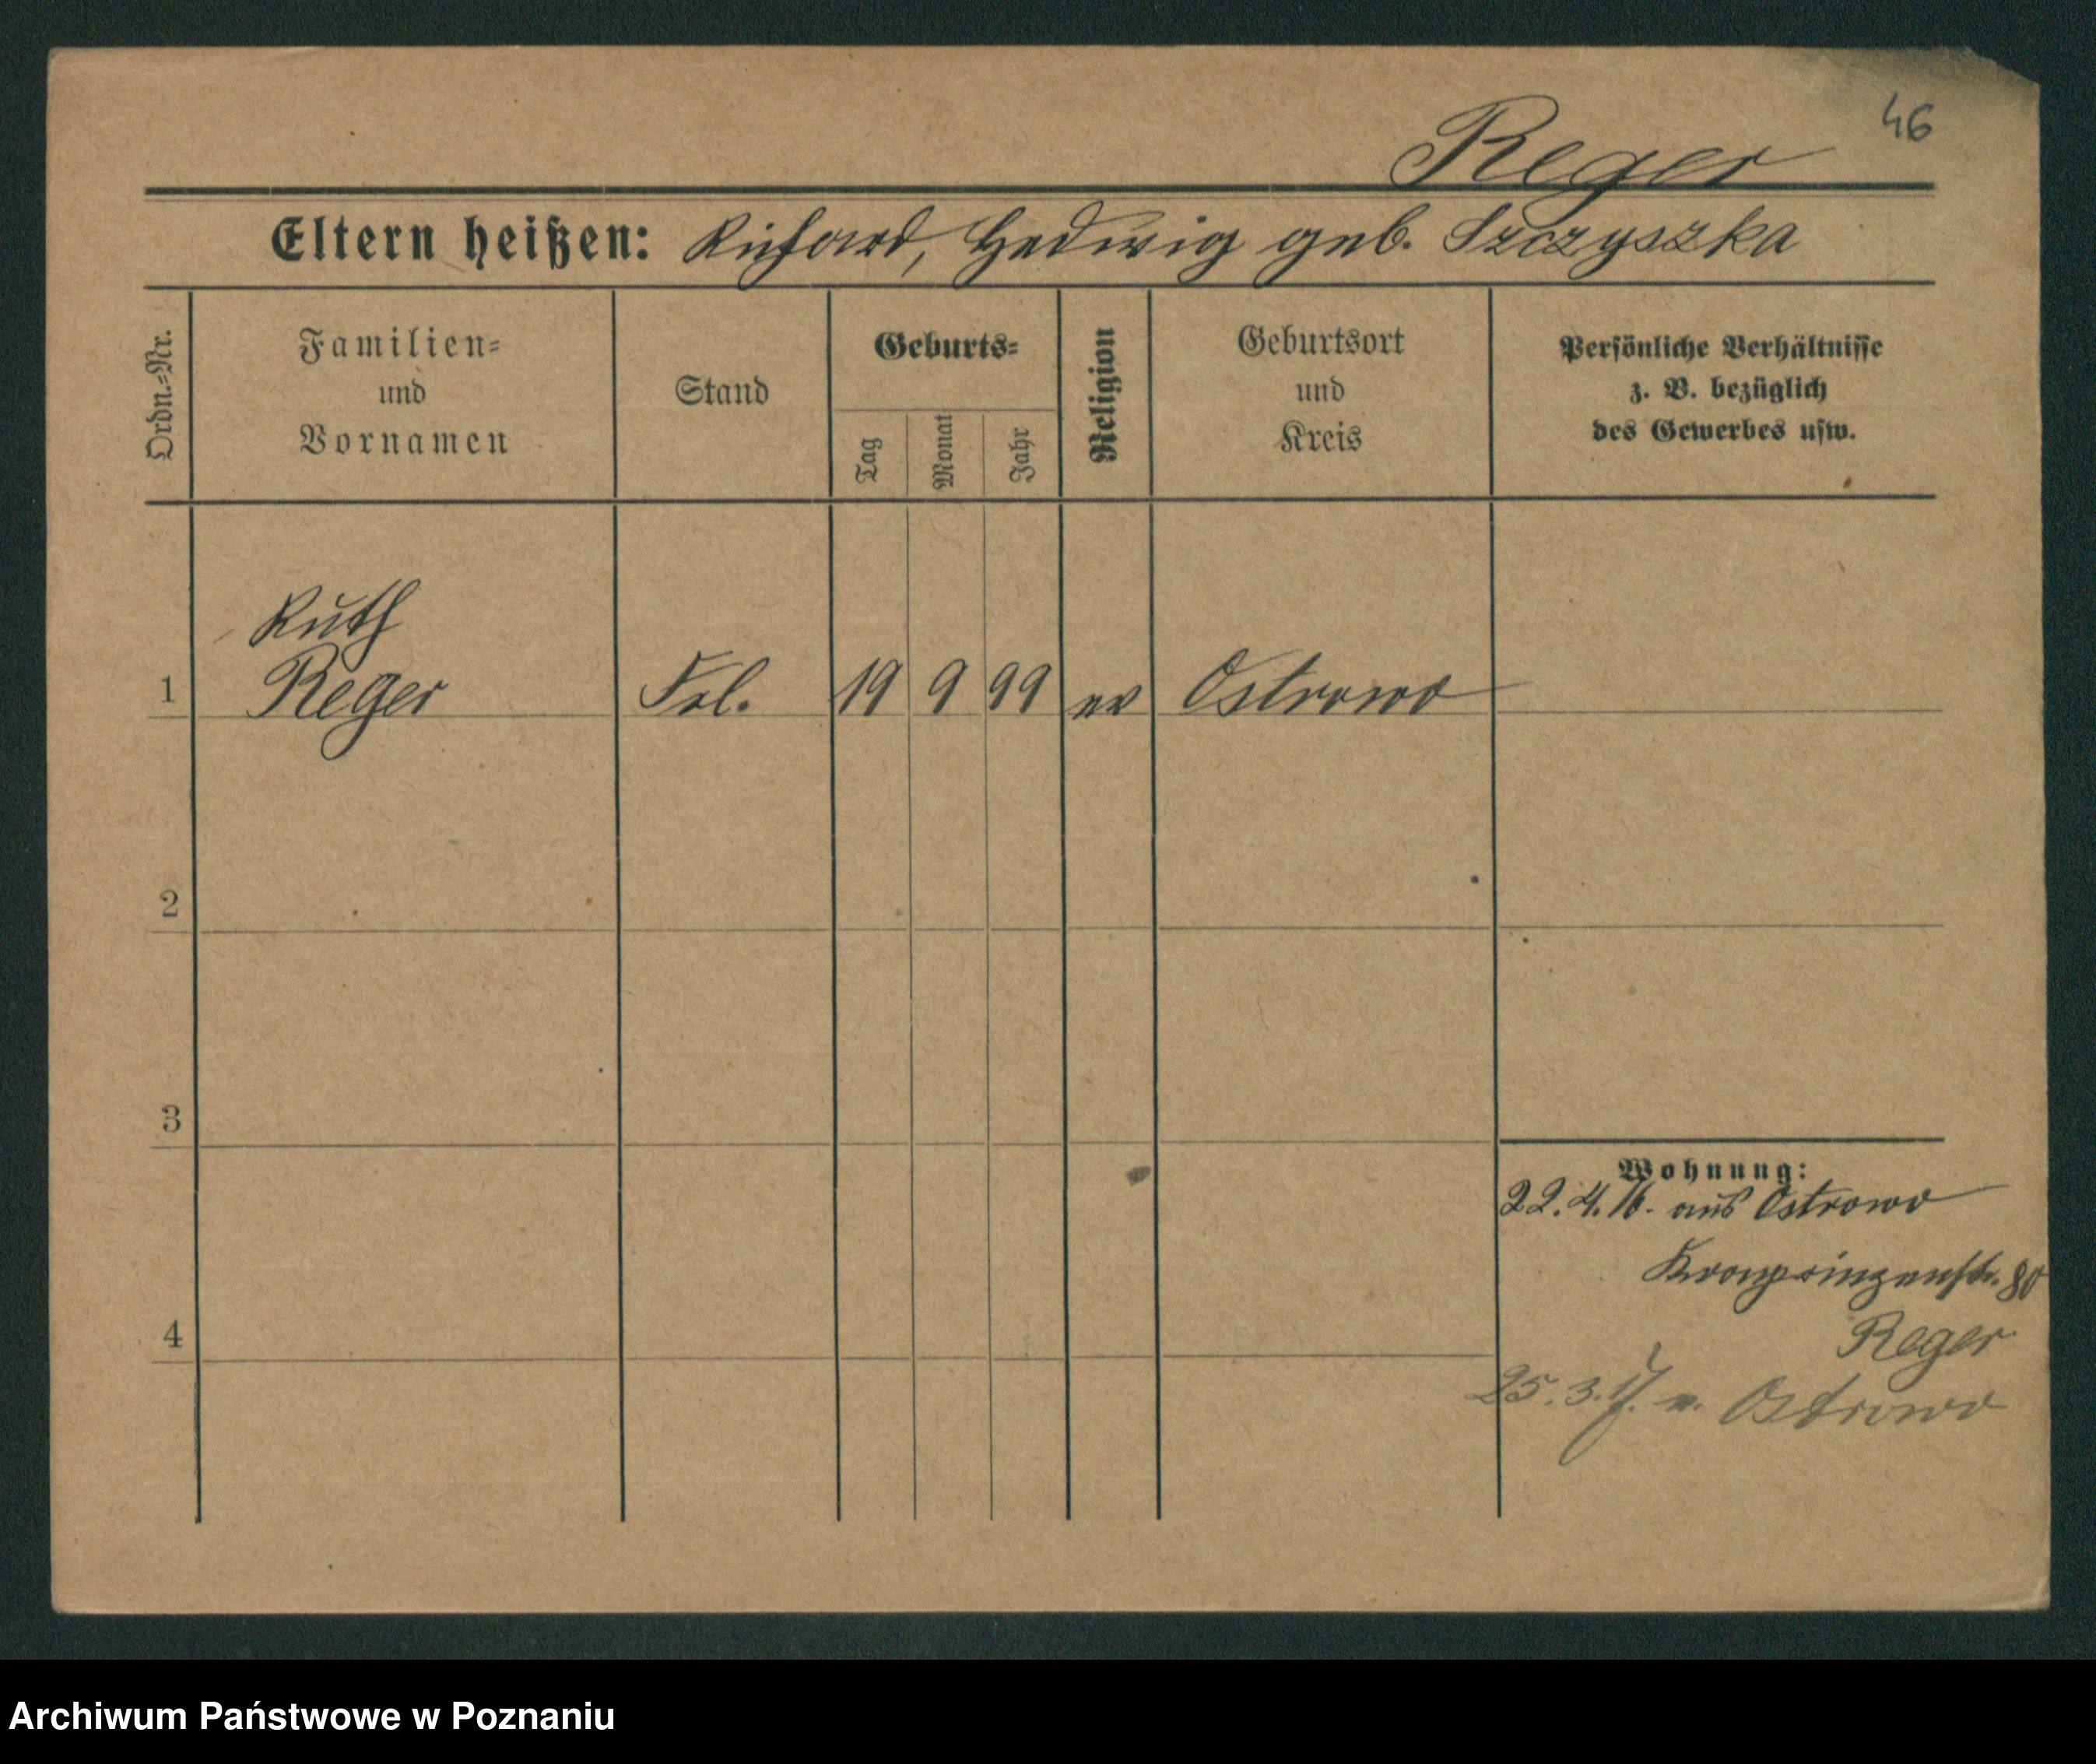 46
Reger
Eltern heißen: Richard, Hedwig geb. Szczyszka
Ordn.=Nr.
Familien=
und
Vornamen
Stand
Geburts=
Tag
Monat
Jahr
Religion
Geburtsort
und
Kreis
Persönliche Verhältnisse
z. B. bezüglich
des Gewerbes usw.
Ruth
1 Reger Frl. 19 9 99 ev Ostrowo
2
3
Wohnung:
22.4.16. aus Ostrowo
Kronprinzenstr. 80
4
Reger
25.3.17. n. Ostrowo
Archiwum Państwowe w Poznaniu